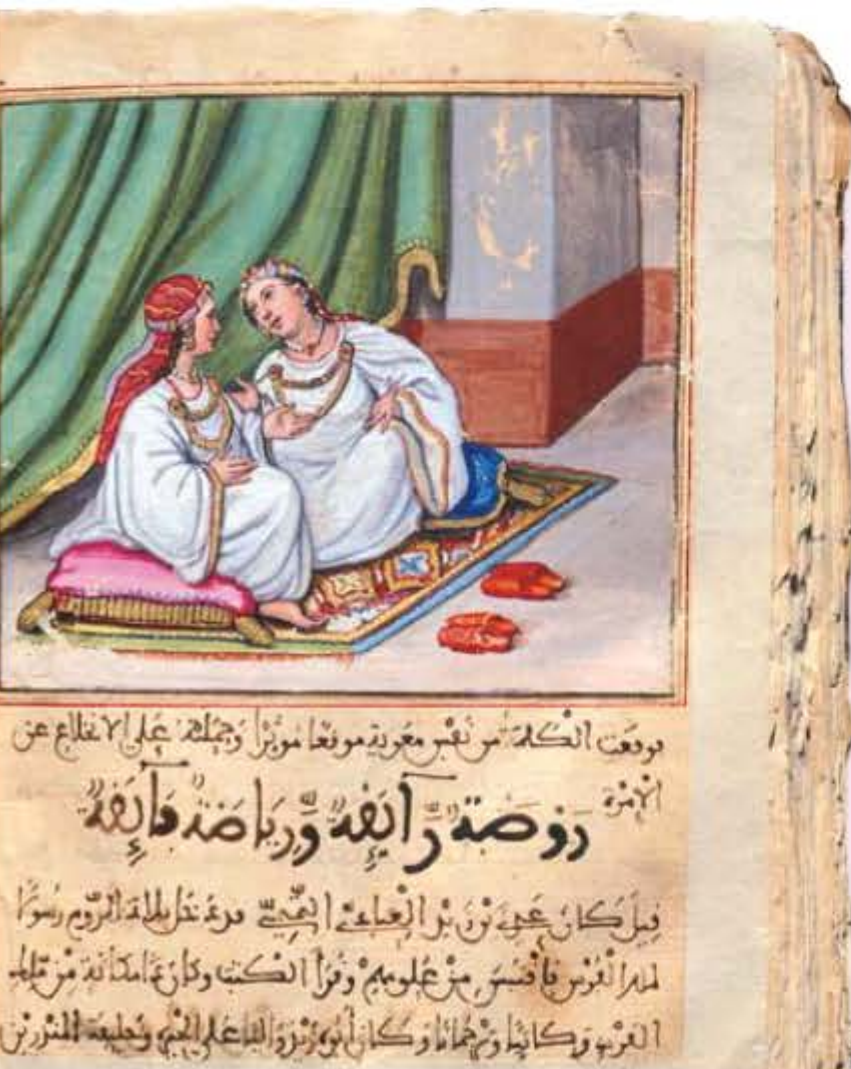 فوقعت الكلمة من نفس معوية موقعا مؤثرا وحملته على الاقلاع عن
الإمرة
رَوْضَةٌ رَّآئِقَةٌ وَّرِيَاضَةٌ فَآئِقَةٌ
قيل كان عدي بن زيد العبادي التميمي قد دخل بلاد الروم رسولا
لملك الفرس فاقتبس من علومهم وقرأ الكتب وكان ذا مكانة من ملك
العرب وكاتبا وترجمانا وكان أبوه زيد واليا على وخليفة المنذر بن